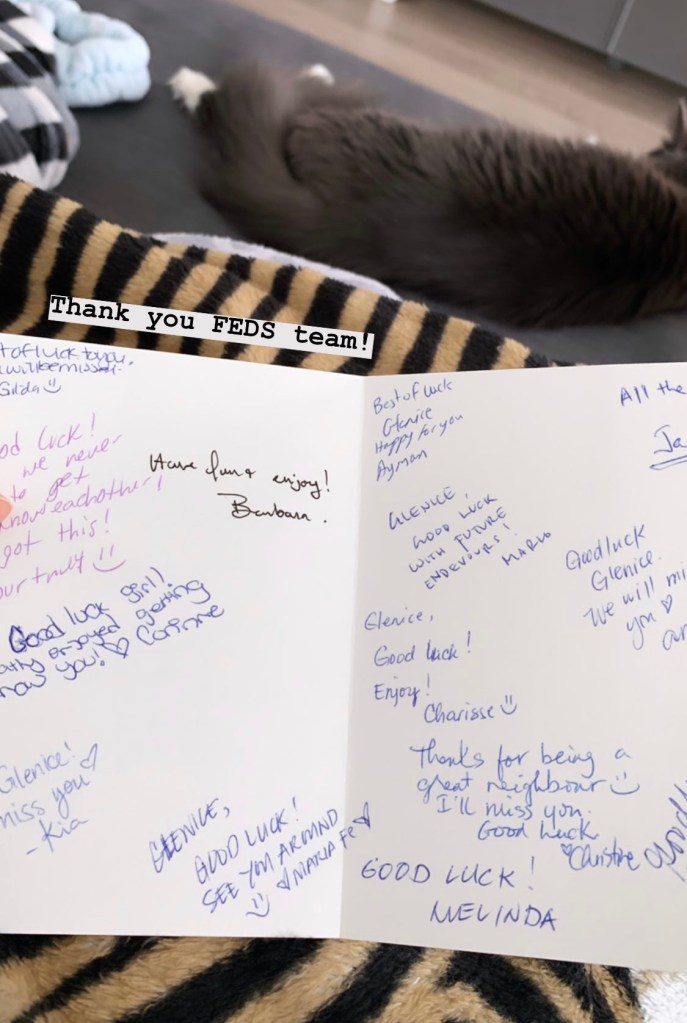 Thank you FEDS team!
t of luck to you,
will be missed.
Gilda
od luck!
we never
to get
know eachother!
got this!
our truly
Have fun & enjoy!
Barbara.
Good luck girl!
enjoyed getting
now you! Corinne
Glenice!
miss you
- Kia
GLENICE,
GOOD LUCK!
SEE YOU AROUND
MARIA FE
Best of luck
Glenice
Happy for you
Ayman
GLENICE,
GOOD LUCK
WITH FUTURE
ENDEVOURS!
MARIO
All the
Ja
Good luck
Glenice.
We will mi
you
Glenice,
Good luck!
Enjoy!
Charisse
Thanks for being a
great neighbour
I'll miss you.
Good luck
Christine
GOOD LUCK!
MELINDA